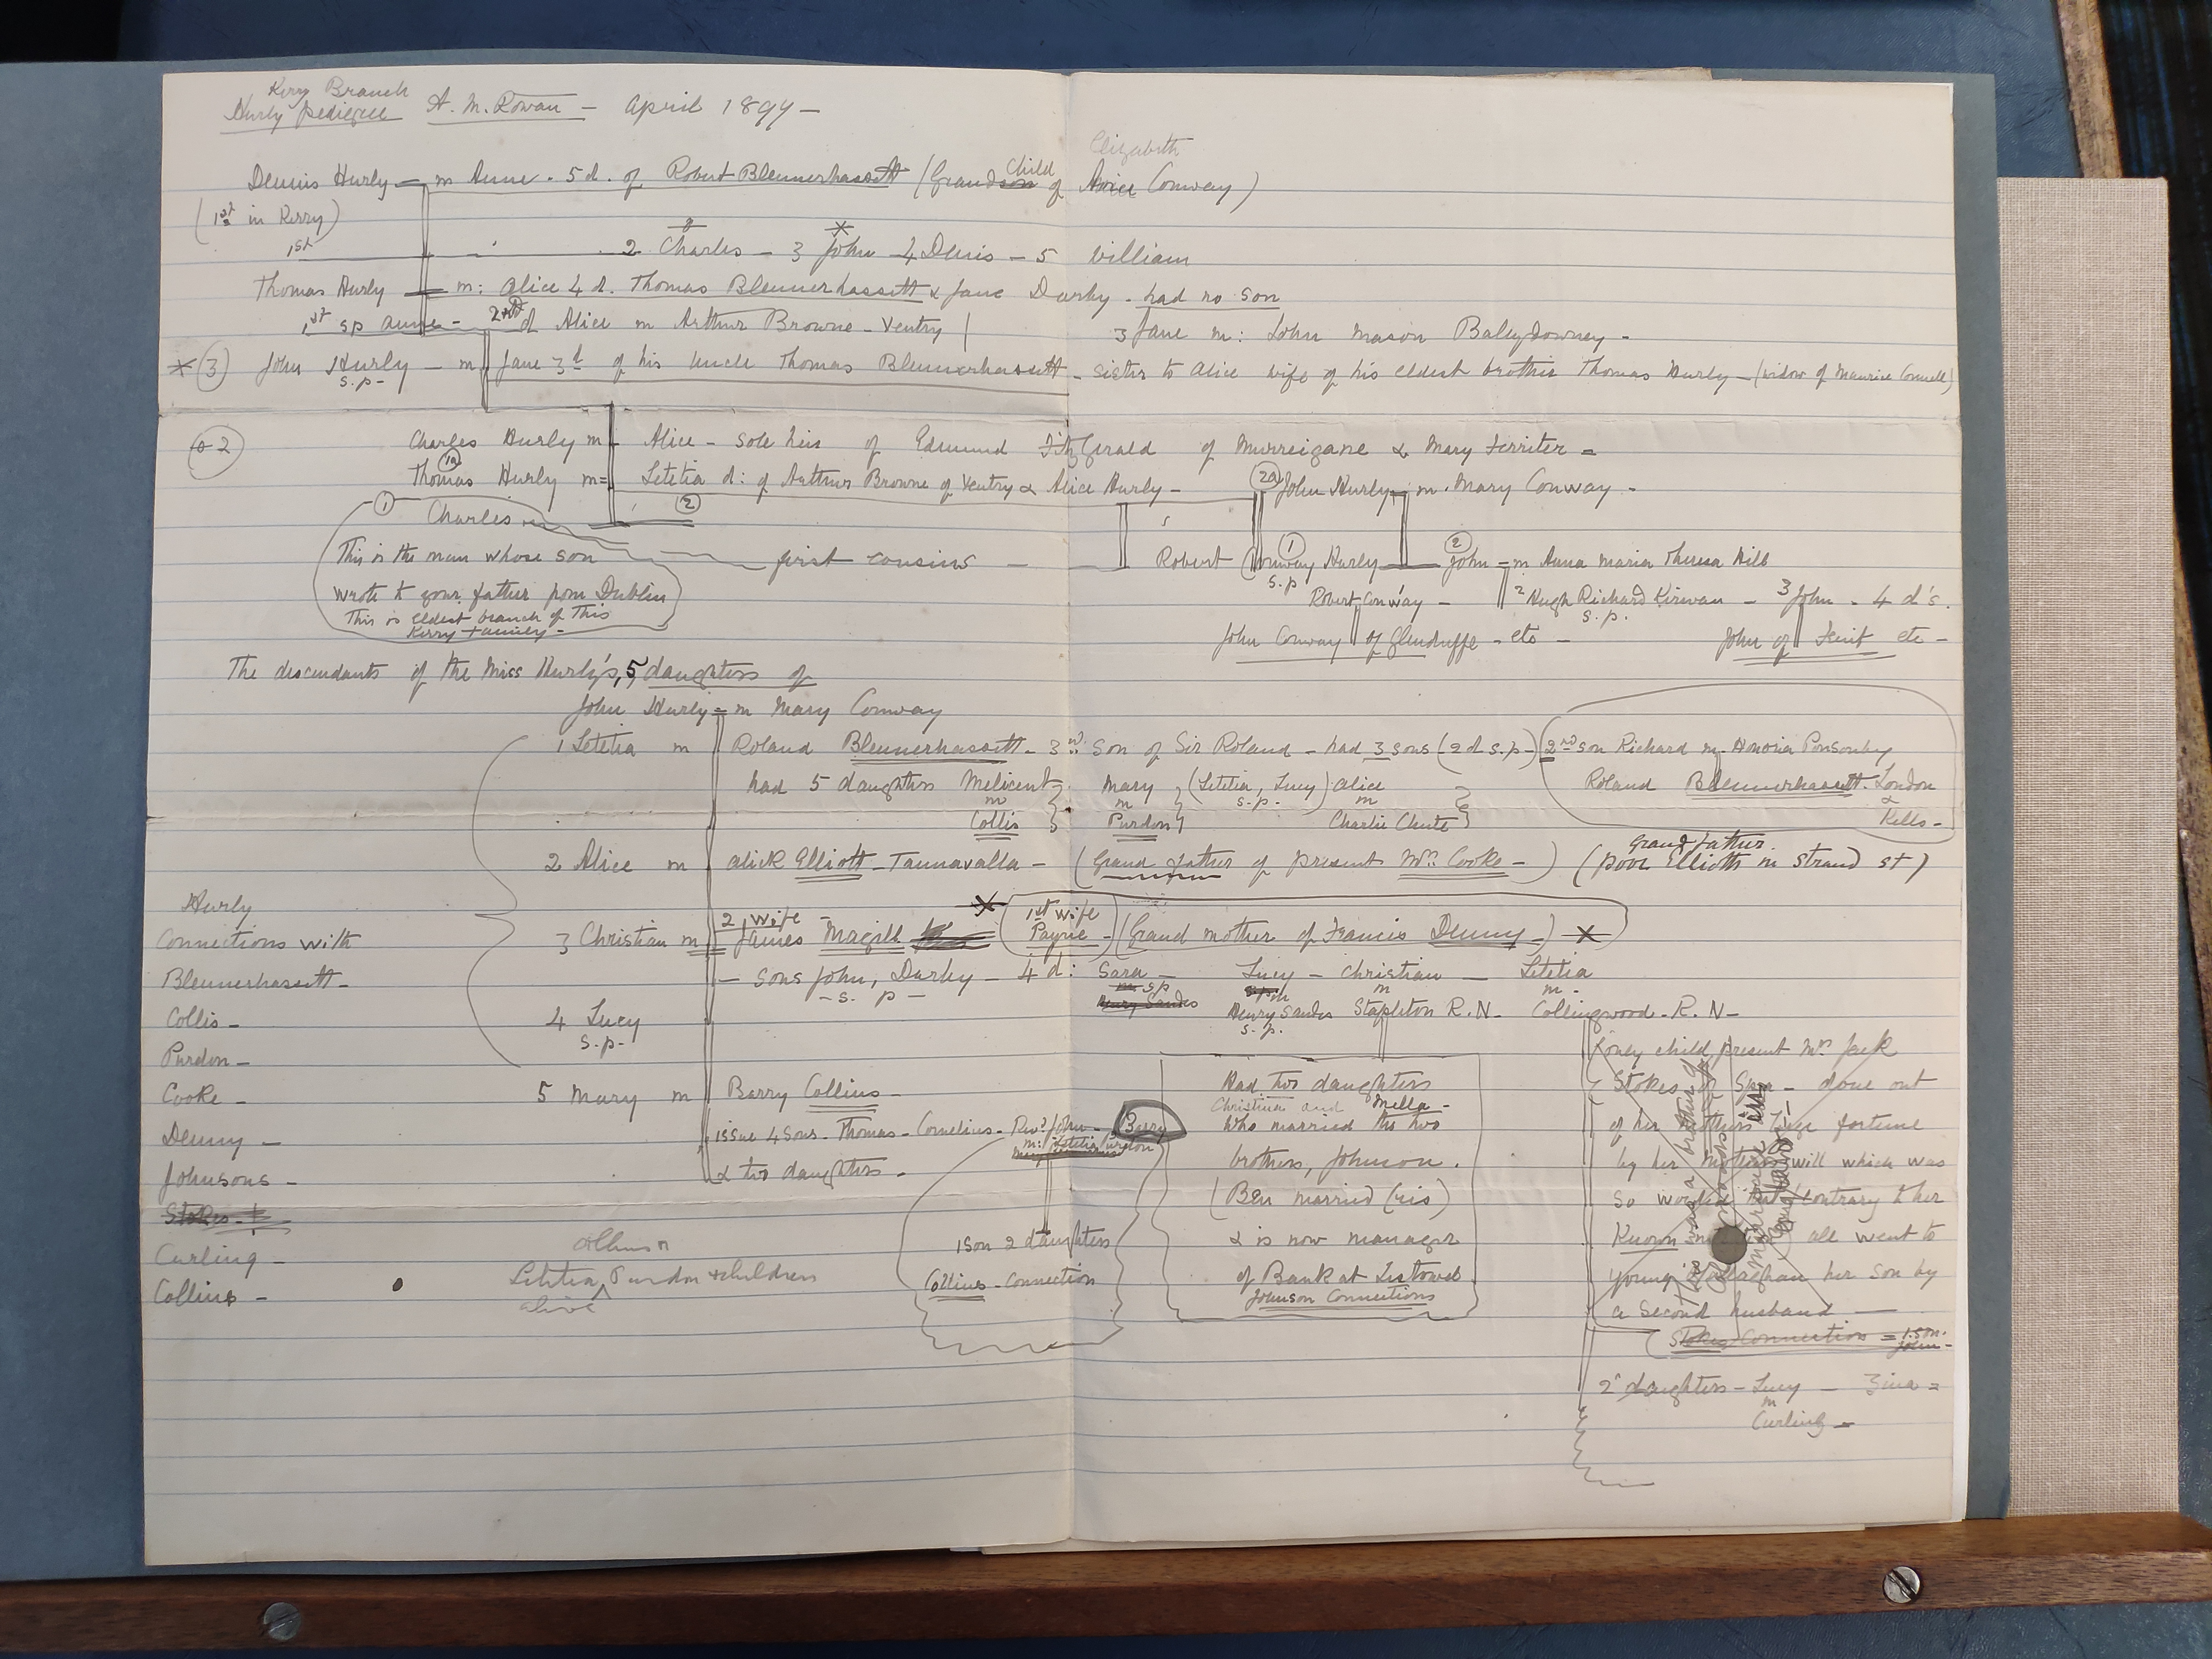 Kerry Branch
Hurly pedigree A. M. Rowan – April 1899 –
Elizabeth
Dennis Hurly – m Anne . 5 d . of Robert Blennerhassett (Grandson Child of Alice Conway)
(1st in Kerry)
1st 2 Charles – 3 John – 4 Denis – 5 William
Thomas Hurly – m: Alice 4 d. Thomas Blennerhassett & Jane Darby . had no son
1st sp Anne – 2nd d Alice m Arthur Browne – Ventry | 3 Jane m: John Mason Ballydowney –
* (3) John Hurly – m Jane 3d of his Uncle Thomas Blennerhassett – sister to Alice wife of his eldest brother Thomas Hurly – (widow of Maurice Connell)
s.p –
2 Charles Hurly m Alice – sole heir of Edmund FitzGerald of Murreigane & Mary Ferriter –
Thomas Hurly m = Letitia d: of Arthur Browne of Ventry & Alice Hurly – (2a) John Hurly – m . Mary Conway –
(1a)
(1) Charles (2)
This is the man whose son first cousins – Robert Conway Hurly – (1) s.p (2) John = m Anna Maria Theresa Hill
wrote to your father from Dublin Robert Conway – 2 Hugh Richard Kirwan – s.p. 3 John – 4 d's.
This is eldest branch of this
Kerry family – John Conway of Glenduffe – etc – John of Fenit etc –
The descendants of the Miss Hurly's, 5 daughters of
John Hurly – m Mary Conway
1 Letitia m Roland Blennerhassett – 3rd son of Sir Roland – had 3 sons (2 d s.p –) 2nd son Richard m – Honoria Ponsonby
had 5 daughters Melicent Mary (Letitia, Lucy) Alice Roland Blennerhassett . London
m m s.p. m &
Collis Purdon Charlie Chute Kells –
2 Alice m Alick Elliott – Tannavalla – (Grand Father of present Mrs Cooke –) (Grandfather poor Elliotts in Strand St)
2 wife – * 1st wife
3 Christian m James Magill Payne – (Grand mother of Francis Denny –) *
– sons John, Darby – 4 d: Sara – Lucy – Christian – Letitia
– s. p – m sp sp m m m –
Henry Sandes Henry Sandes Stapleton R.N – Collingwood – R.N –
s.p.
4 Lucy
s.p –
5 Mary m Barry Collins –
issue 4 sons – Thomas – Cornelius – Revd John – Barry
m: Letitia Purdon
& two daughters –
1 son 2 daughters
Collins – Connection
Had two daughters
Christina and Mella –
who married the two
brothers, Johnson .
(Ben married (his)
& is now manager
of Bank at Listowel
Johnson Connections
(only child, present Mrs Jack
Stokes of Spa – done out
of her fathers large fortune
by her mothers will which was
so worded that contrary to her
known all went to
young O'Callaghan her son by
a second husband –
(Stokes Connection = 1 son.
John –
2 daughters – Lucy – Zina =
m
Curling –
Hurly
Connections with
Blennerhassett –
Collis –
Purdon –
Cooke –
Denny –
Johnsons –
Stokes –
Curling –
Collins –
Letitia Purdon & children
alive